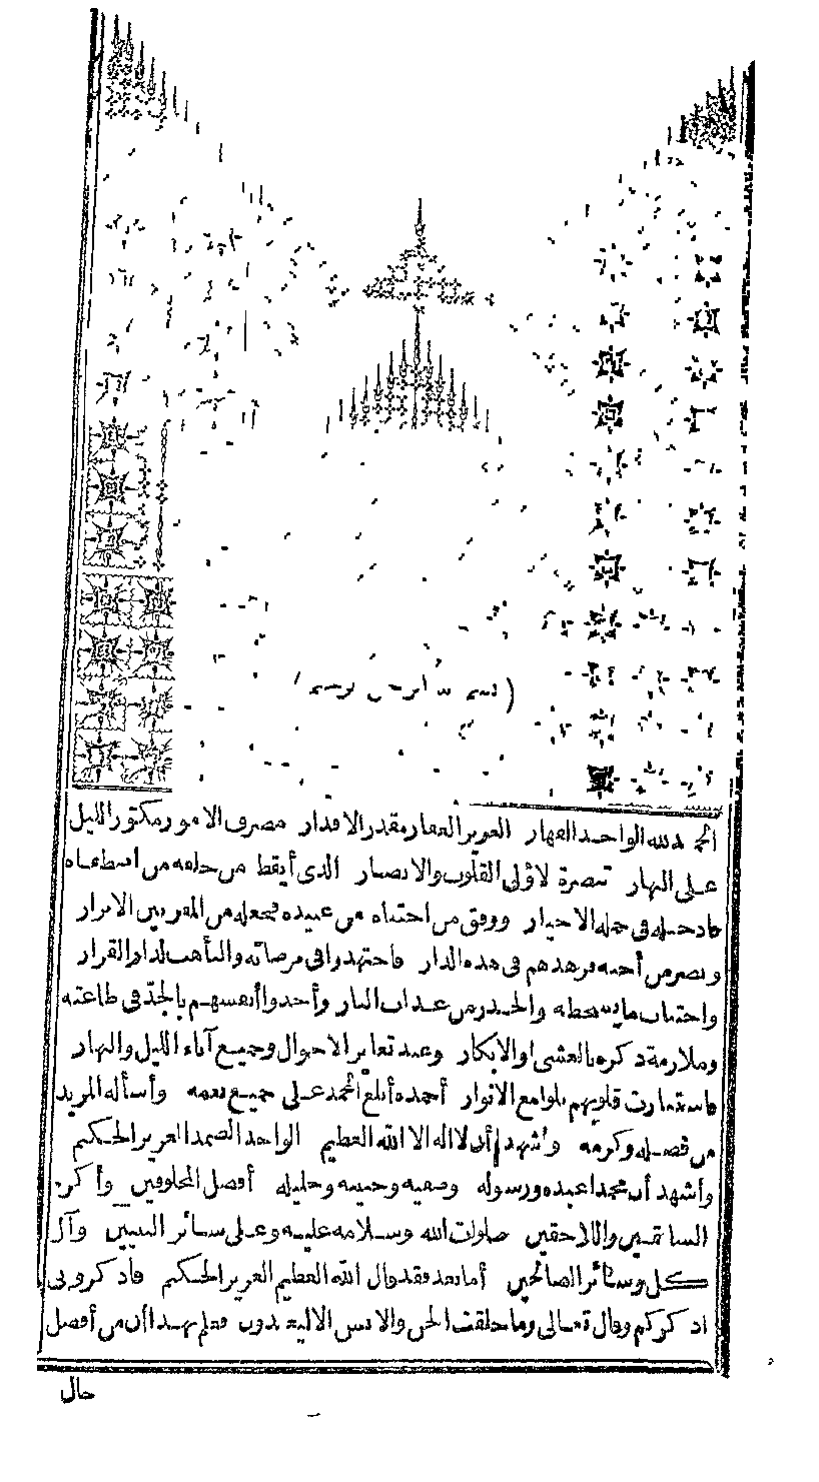 (بسم الله الرحمن الرحيم)
الحمد لله الواحد القهار العزيز الغفار مقدر الاقدار مصرف الامور مكتور الليل
على النهار تبصرة لاولى القلوب والابصار الذى أيقظ من خلقه من اصطفاه
فادخله فى جملة الاخيار ووفق من اجتباه من عبيده فجعله من المقربين الابرار
وبصر من أحبه فزهدهم فى هذه الدار فاجتهدوا فى مرضاته والتأهب لدار القرار
واجتناب ما يسخطه والحذر من عذاب النار وأخذوا أنفسهم بالجدّ فى طاعته
وملازمة ذكره بالعشى والابكار وعند تغاير الاحوال وجميع آناء الليل والنهار
فاستنارت قلوبهم بلوامع الانوار أحمده أبلغ الحمد على جميع نعمه وأسأله المزيد
من فضله وكرمه وأشهد أن لا اله الا الله العظيم الواحد الصمد العزيز الحكيم
وأشهد أن محمدا عبده ورسوله وصفيه وحبيبه وخليله أفضل المخلوقين وأكرم
السابقين واللاحقين صلوات الله وسلامه عليه وعلى سائر النبيين وآل
كل وسائر الصالحين أما بعد فقد قال الله العظيم العزيز الحكيم فاذكرونى
أذكركم وقال تعالى وما خلقت الجن والانس الا ليعبدون فعلم بهذا أن من أفضل
حال